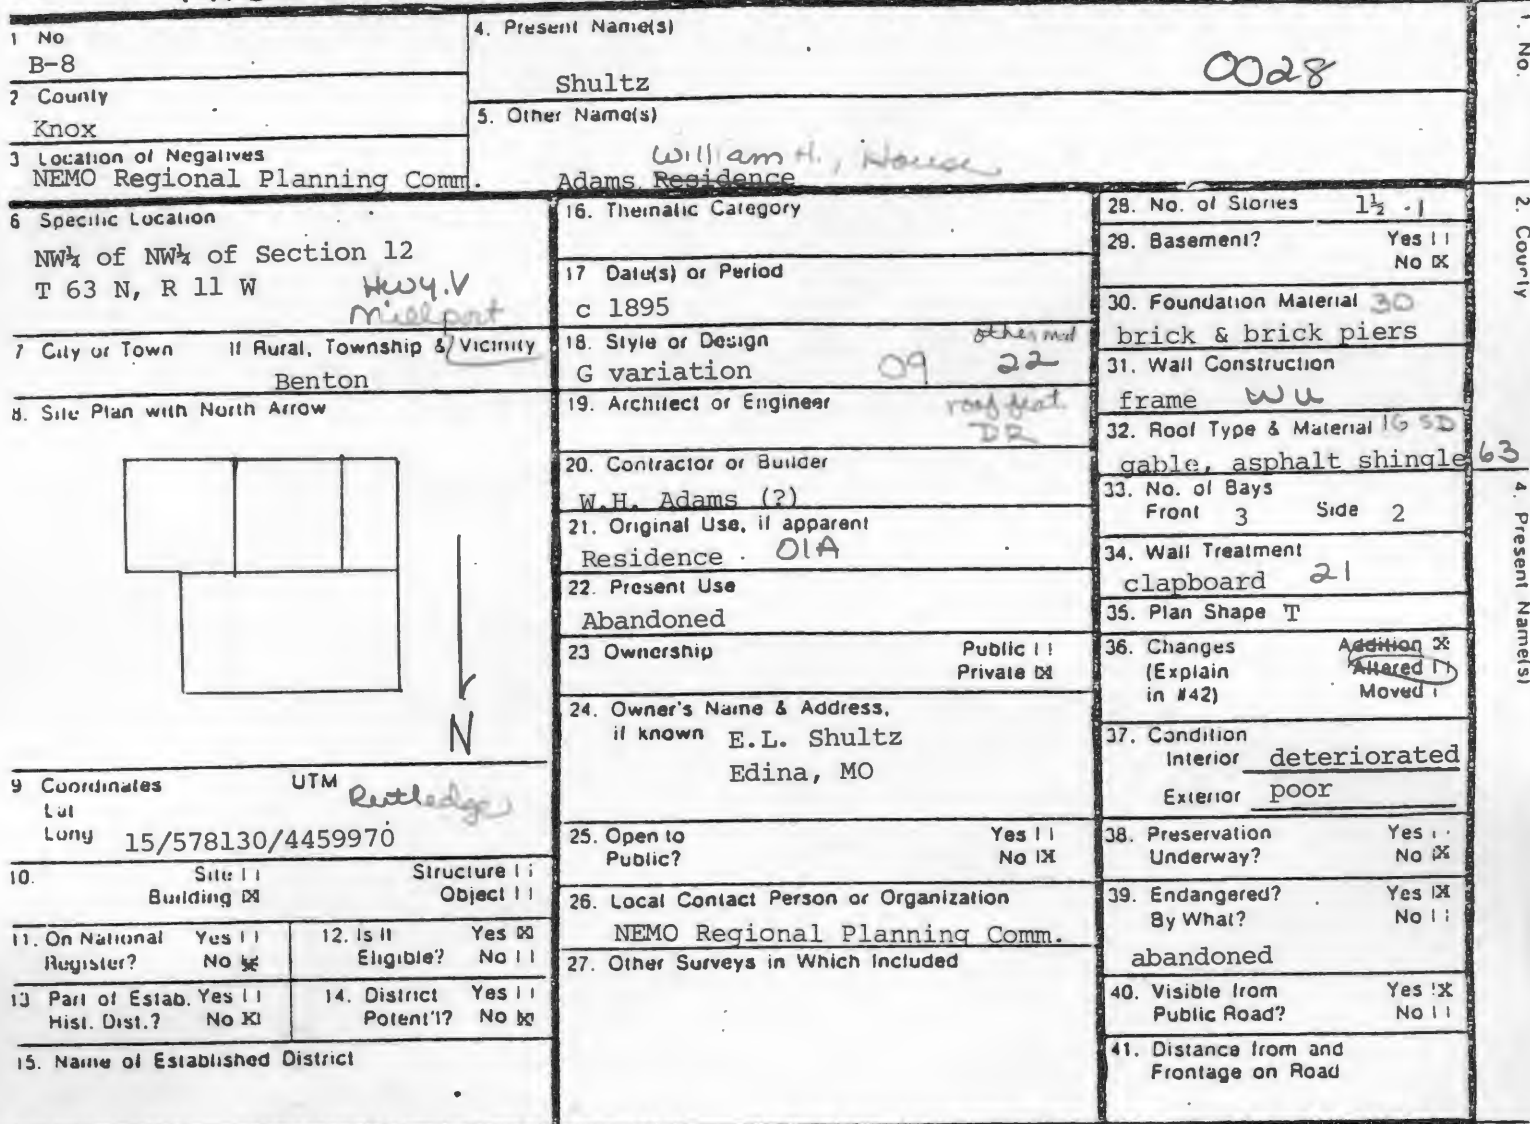 1 No
B-8
2 County
Knox
3 Location of Negatives
NEMO Regional Planning Comm.
4. Present Name(s)
Shultz
0028
5. Other Name(s)
William H., House
Adams Residence
6 Specific Location
NW¼ of NW¼ of Section 12
T 63 N, R 11 W
Hwy. V
Millport
7 City or Town If Rural, Township & Vicinity
Benton
8. Site Plan with North Arrow
N
9 Coordinates UTM
Rutledge
Lat
Long 15/578130/4459970
10. Site Structure
Building X Object
11. On National Yes
Register? No X
12. Is It Yes X
Eligible? No
13 Part of Estab. Yes
Hist. Dist.? No X
14. District Yes
Potent'l? No X
15. Name of Established District
16. Thematic Category
17 Date(s) or Period
c 1895
18. Style or Design
other mid
G variation 09 22
19. Architect or Engineer
roof feat
DR
20. Contractor or Builder
W.H. Adams (?)
21. Original Use, if apparent
Residence 01A
22. Present Use
Abandoned
23 Ownership Public
Private X
24. Owner's Name & Address,
if known E.L. Shultz
Edina, MO
25. Open to Yes
Public? No X
26. Local Contact Person or Organization
NEMO Regional Planning Comm.
27. Other Surveys in Which Included
28. No. of Stories 1½ .1
29. Basement? Yes
No X
30. Foundation Material 30
brick & brick piers
31. Wall Construction
frame WU
32. Roof Type & Material IG SD
gable, asphalt shingle 63
33. No. of Bays
Front 3 Side 2
34. Wall Treatment
clapboard 21
35. Plan Shape T
36. Changes Addition X
(Explain Altered
in #42) Moved
37. Condition
Interior deteriorated
Exterior poor
38. Preservation Yes
Underway? No X
39. Endangered? Yes X
By What? No
abandoned
40. Visible from Yes X
Public Road? No
41. Distance from and
Frontage on Road
1. No.
2. County
4. Present Name(s)